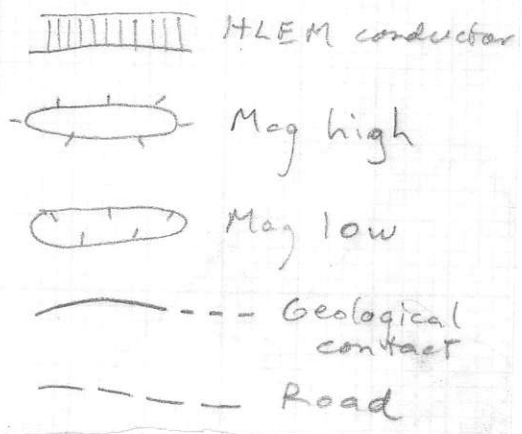 HLEM conductor
Mag high
Mag low
Geological
contact
Road